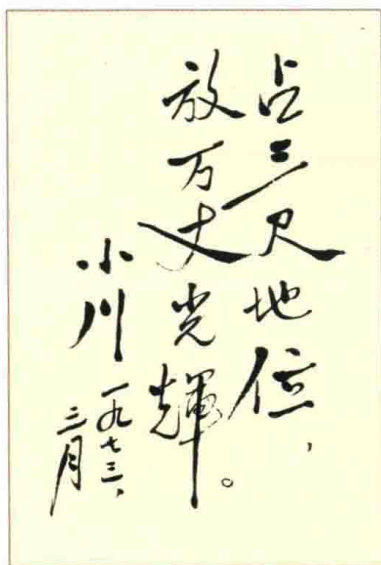 占三尺地位，
放万丈光辉。
小川
一九七三、
三月